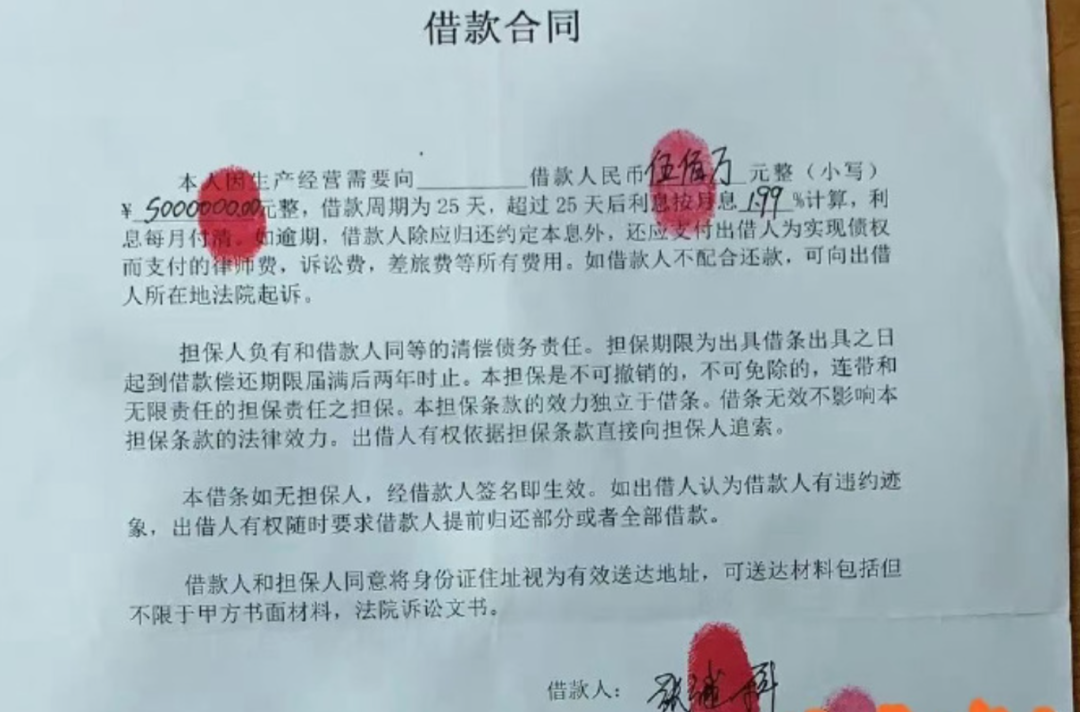 借款合同
本人因生产经营需要向__________借款人民币伍佰万元整（小写）
¥ 5000000.00元整，借款周期为25天，超过25天后利息按月息1.99%计算，利
息每月付清。如逾期，借款人除应归还约定本息外，还应支付出借人为实现债权
而支付的律师费，诉讼费，差旅费等所有费用。如借款人不配合还款，可向出借
人所在地法院起诉。
担保人负有和借款人同等的清偿债务责任。担保期限为出具借条出具之日
起到借款偿还期限届满后两年时止。本担保是不可撤销的，不可免除的，连带和
无限责任的担保责任之担保。本担保条款的效力独立于借条。借条无效不影响本
担保条款的法律效力。出借人有权依据担保条款直接向担保人追索。
本借条如无担保人，经借款人签名即生效。如出借人认为借款人有违约迹
象，出借人有权随时要求借款人提前归还部分或者全部借款。
借款人和担保人同意将身份证住址视为有效送达地址，可送达材料包括但
不限于甲方书面材料，法院诉讼文书。
借款人：张继科